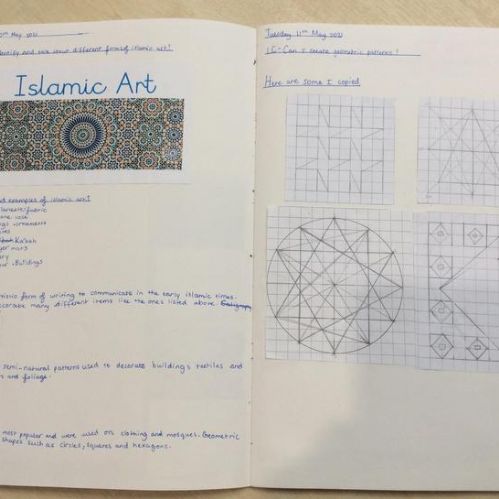 May 2021
and use four different forms of islamic art!
Islamic Art
examples of islamic art!
Ka'bah
mats
Buildings
form of writing to communicate in the early islamic times.
many different items like the ones listed above.
semi-natural patterns used to decorate buildings textiles and
and foliage.
most popular and were used on clothing and mosques. Geometric
shapes such as circles, squares and hexagons.
Tuesday 11th May 2021
LC: Can I create geometric patterns?
Here are some I copied